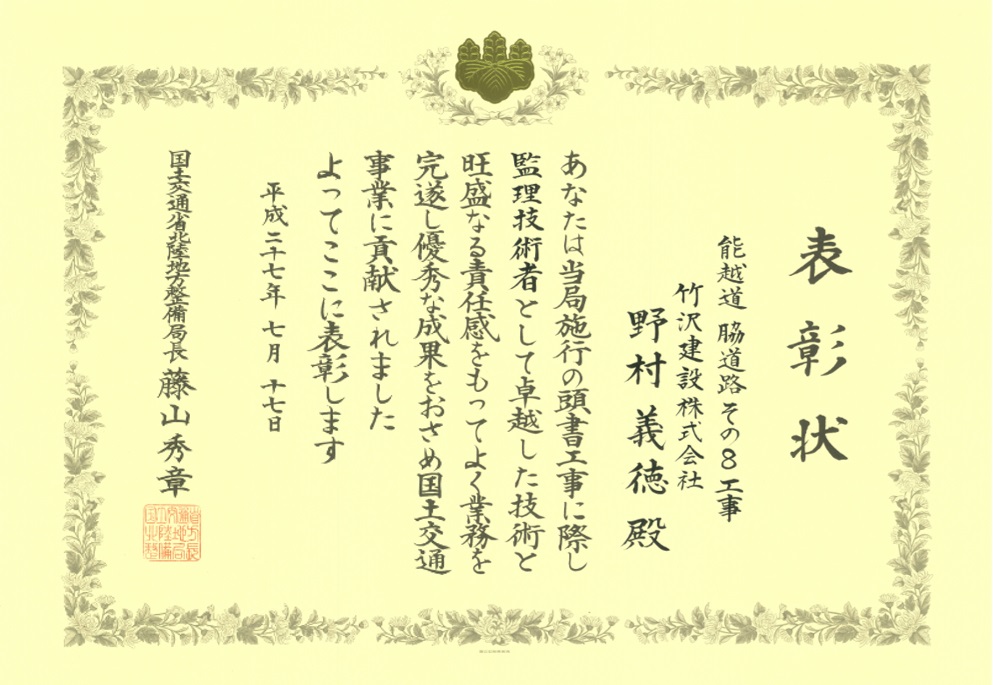 表彰状
能越道 脇道路その8工事
竹沢建設株式会社
野村義徳殿
あなたは当局施行の頭書工事に際し
監理技術者として卓越した技術と
旺盛なる責任感をもってよく業務を
完遂し優秀な成果をおさめ国土交通
事業に貢献されました
よってここに表彰します
平成二十七年 七月 十七日
国土交通省北陸地方整備局長 藤山秀章